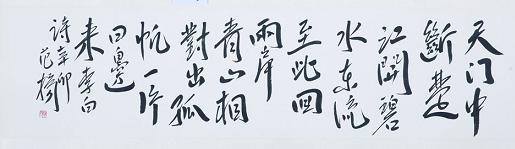 天门中
斷楚
江開碧
水东流
至此回
兩岸
青山相
對出孤
帆一片
日邊
来李白
诗辛卯
范